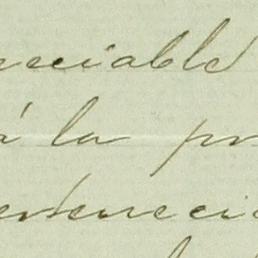 reciable
á la pr
erteneci